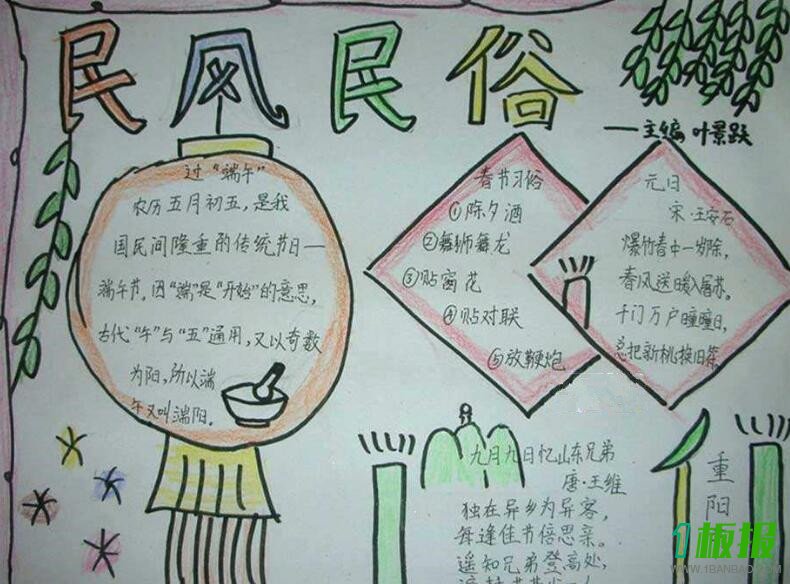 民风民俗
——主编 叶景跃
过“端午”
农历五月初五，是我
国民间隆重的传统节日—
端午节。因“端”是“开始”的意思，
古代“午”与“五”通用，又以奇数
为阳，所以端
午又叫端阳。
春节习俗
①除夕酒
②舞狮舞龙
③贴窗花
④贴对联
⑤放鞭炮
元日
宋·王安石
爆竹春中一岁除，
春风送暖入屠苏。
千门万户曈曈日，
总把新桃换旧符。
九月九日忆山东兄弟
唐·王维
独在异乡为异客，
每逢佳节倍思亲。
遥知兄弟登高处，
重阳
1板报
WWW.1BANBAO.COM